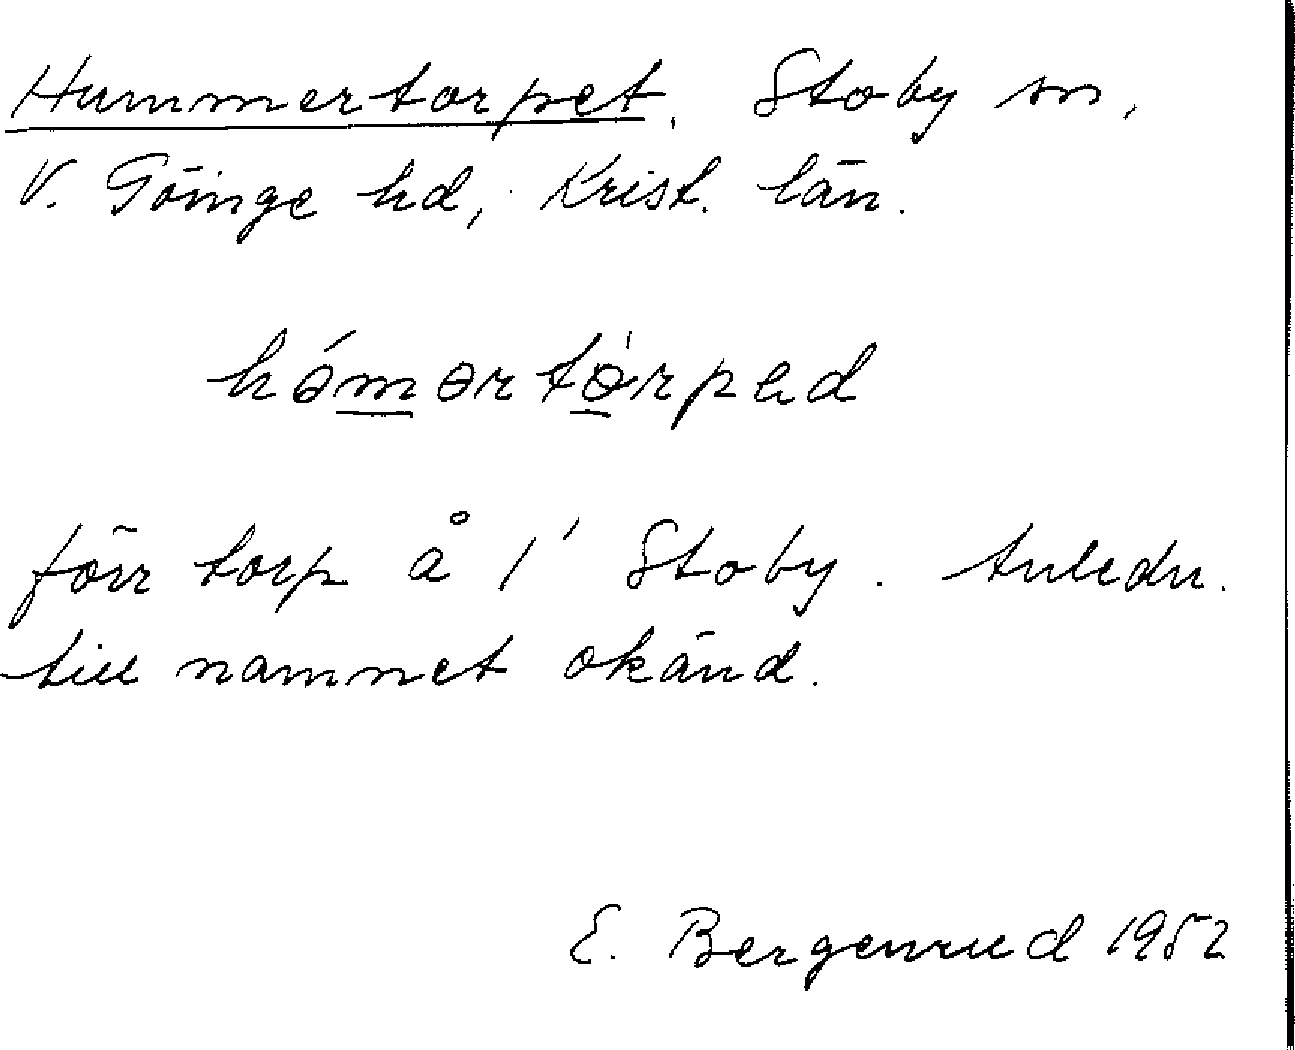 Hummertorpet, Stoby sn,
V. Göinge hd, Krist. län.
hómərtòrpəd
förr torp å 1' Stoby. Anledn.
till namnet okänd.
E. Bergenrud 1952